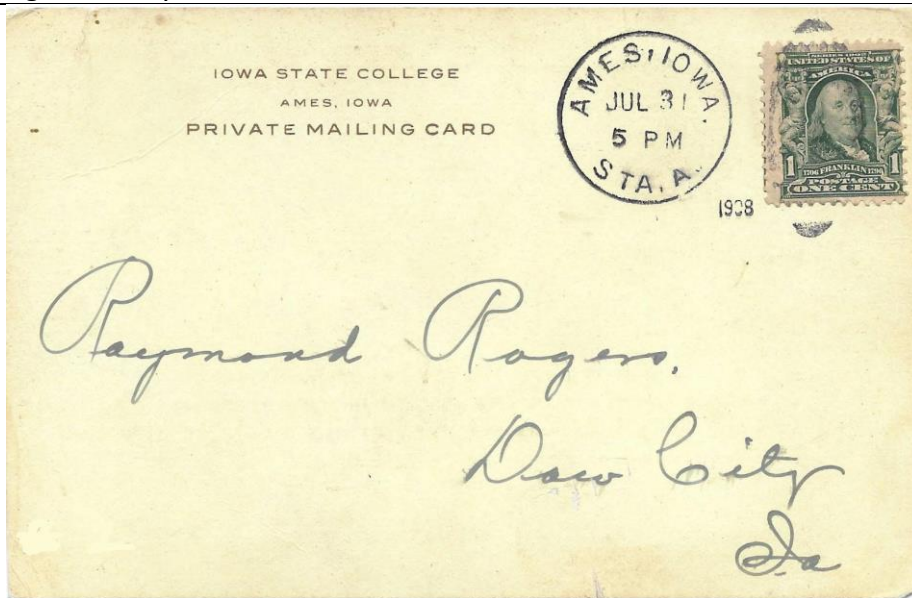 IOWA STATE COLLEGE
AMES, IOWA
PRIVATE MAILING CARD
AMES, IOWA.
JUL 31
5 PM
STA. A.
1908
SERIES 1902
UNITED STATES OF
AMERICA
1706 FRANKLIN 1790
1 1
POSTAGE
ONE CENT
Raymond Rogers.
Dow City
Ia